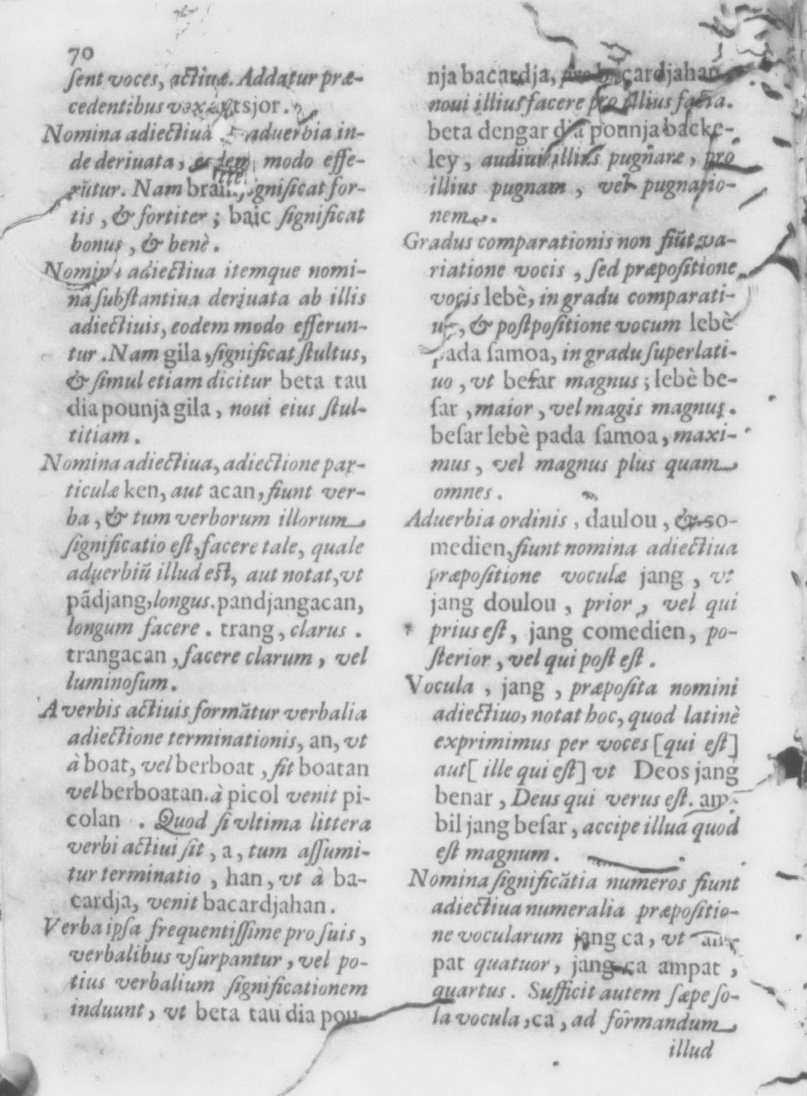 70
ſent voces, actiuæ. Addatur præ-
cedentibus tsjor.
Nomina adiectiua aduerbia in-
de deriuata, modo effe-
rūtur. Nam ſignificat for-
tis, & fortiter; baic ſignificat
bonus, & benè.
Nomina adiectiua itemque nomi-
na ſubſtantiua deriuata ab illis
adiectiuis, eodem modo efferun-
tur. Nam gila, ſignificat ſtultus,
& ſimul etiam dicitur beta tau
dia pounja gila, noui eius ſtul-
titiam.
Nomina adiectiua, adiectione par-
ticulæ ken, aut acan, fiunt ver-
ba, & tum verborum illorum
ſignificatio eſt, facere tale, quale
aduerbiū illud eſt, aut notat, vt
pādjang, longus. pandjangacan,
longum facere. trang, clarus.
trangacan, facere clarum, vel
luminoſum.
A verbis actiuis formātur verbalia
adiectione terminationis, an, vt
à boat, vel berboat, fit boatan
vel berboatan. à picol venit pi-
colan. Quod ſi vltima littera
verbi actiui ſit, a, tum aſſumi-
tur terminatio, han, vt à ba-
cardja, venit bacardjahan.
Verba ipſa frequentiſſime pro ſuis,
verbalibus vſurpantur, vel po-
tius verbalium ſignificationem
induunt, vt beta tau dia pou-
nja bacardja, pro bacardjahan
noui illius facere pro illius facta.
beta dengar dia pounja backe-
ley, audiui illius pugnare, pro
illius pugnam, vel pugnatio-
nem.
Gradus comparationis non fiūt va-
riatione vocis, ſed præpoſitione
vocis lebè, in gradu comparati-
uo, & poſtpoſitione vocum lebè
pada ſamoa, in gradu ſuperlati-
uo, vt beſar magnus; lebè be-
ſar, maior, vel magis magnus.
beſar lebè pada ſamoa, maxi-
mus, vel magnus plus quam
omnes.
Aduerbia ordinis, daulou, & so-
medien, fiunt nomina adiectiua
præpoſitione voculæ jang, vt
jang doulou, prior, vel qui
prius eſt, jang comedien, po-
ſterior, vel qui poſt eſt.
Vocula, jang, præpoſita nomini
adiectiuo, notat hoc, quod latinè
exprimimus per voces [qui eſt]
aut [ ille qui eſt] vt Deos jang
benar, Deus qui verus eſt. am-
bil jang beſar, accipe illud quod
eſt magnum.
Nomina ſignificātia numeros fiunt
adiectiua numeralia præpoſitio-
ne vocularum jang ca, vt am-
pat quatuor, jang ca ampat,
quartus. Sufficit autem ſæpe ſo-
la vocula, ca, ad formandum
illud